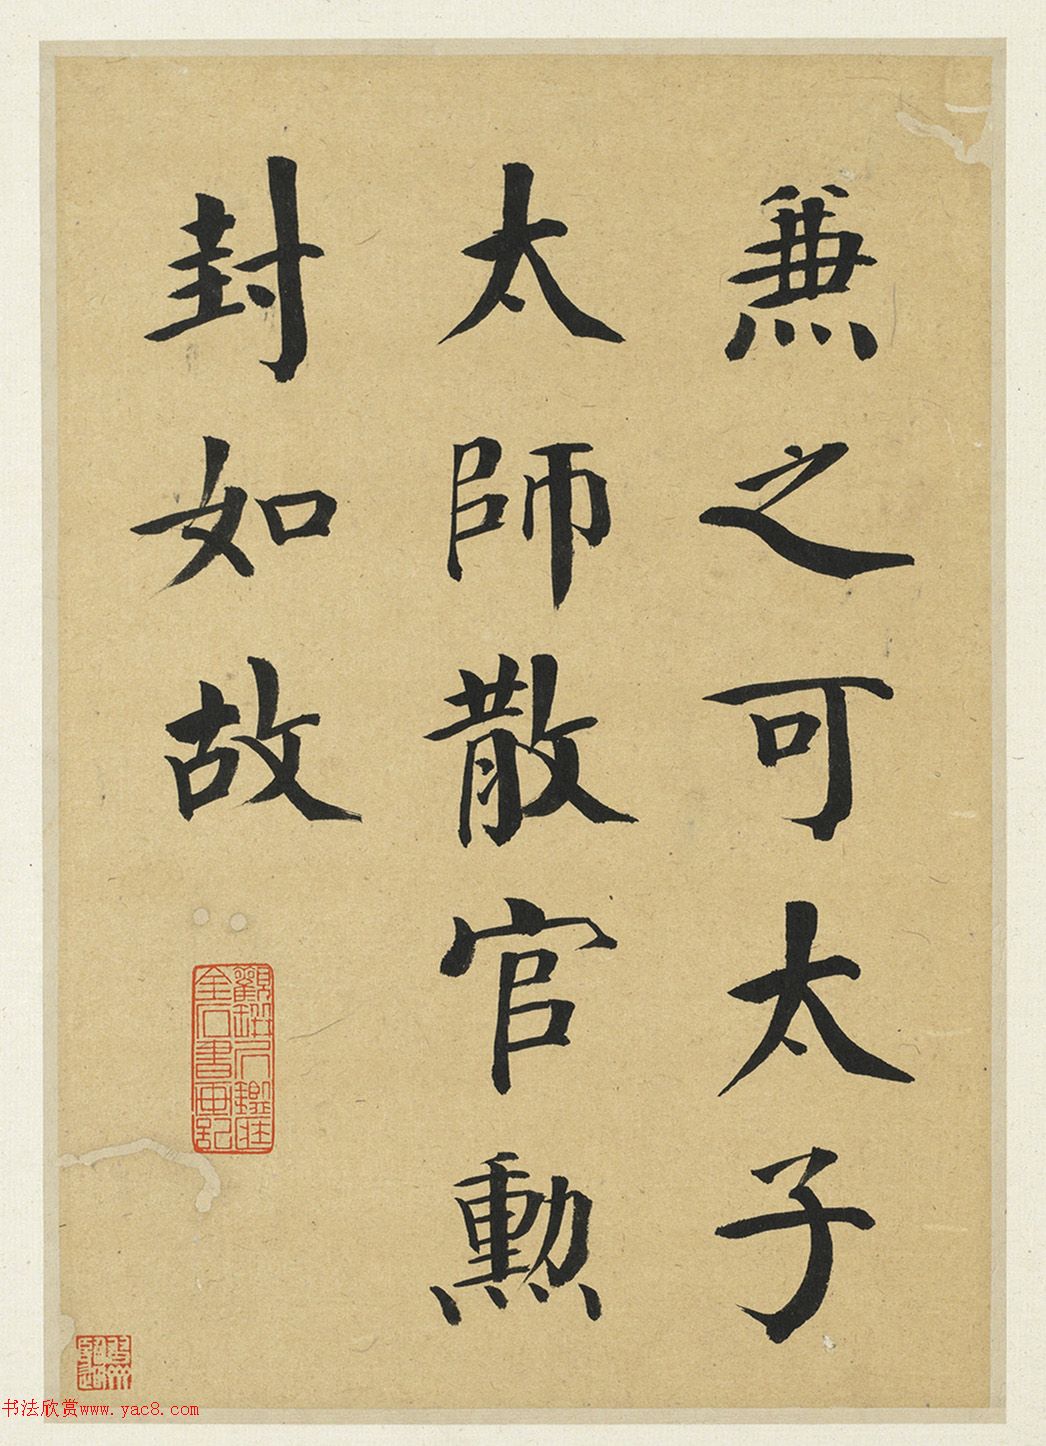 兼之可太子
太師散官勲
封如故
金石書画記
书法欣赏www.yac8.com